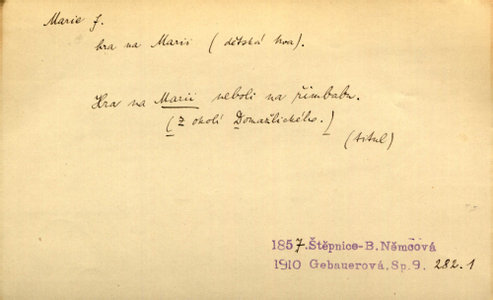 Marie f.
hra na Marii (dětská hra).
Hra na Marii neboli na pimbabu.
(z okolí Domažlického.)
(titul)
1857. Štěpnice-B. Němcová
1910 Gebauerová, Sp. 9. 282.1